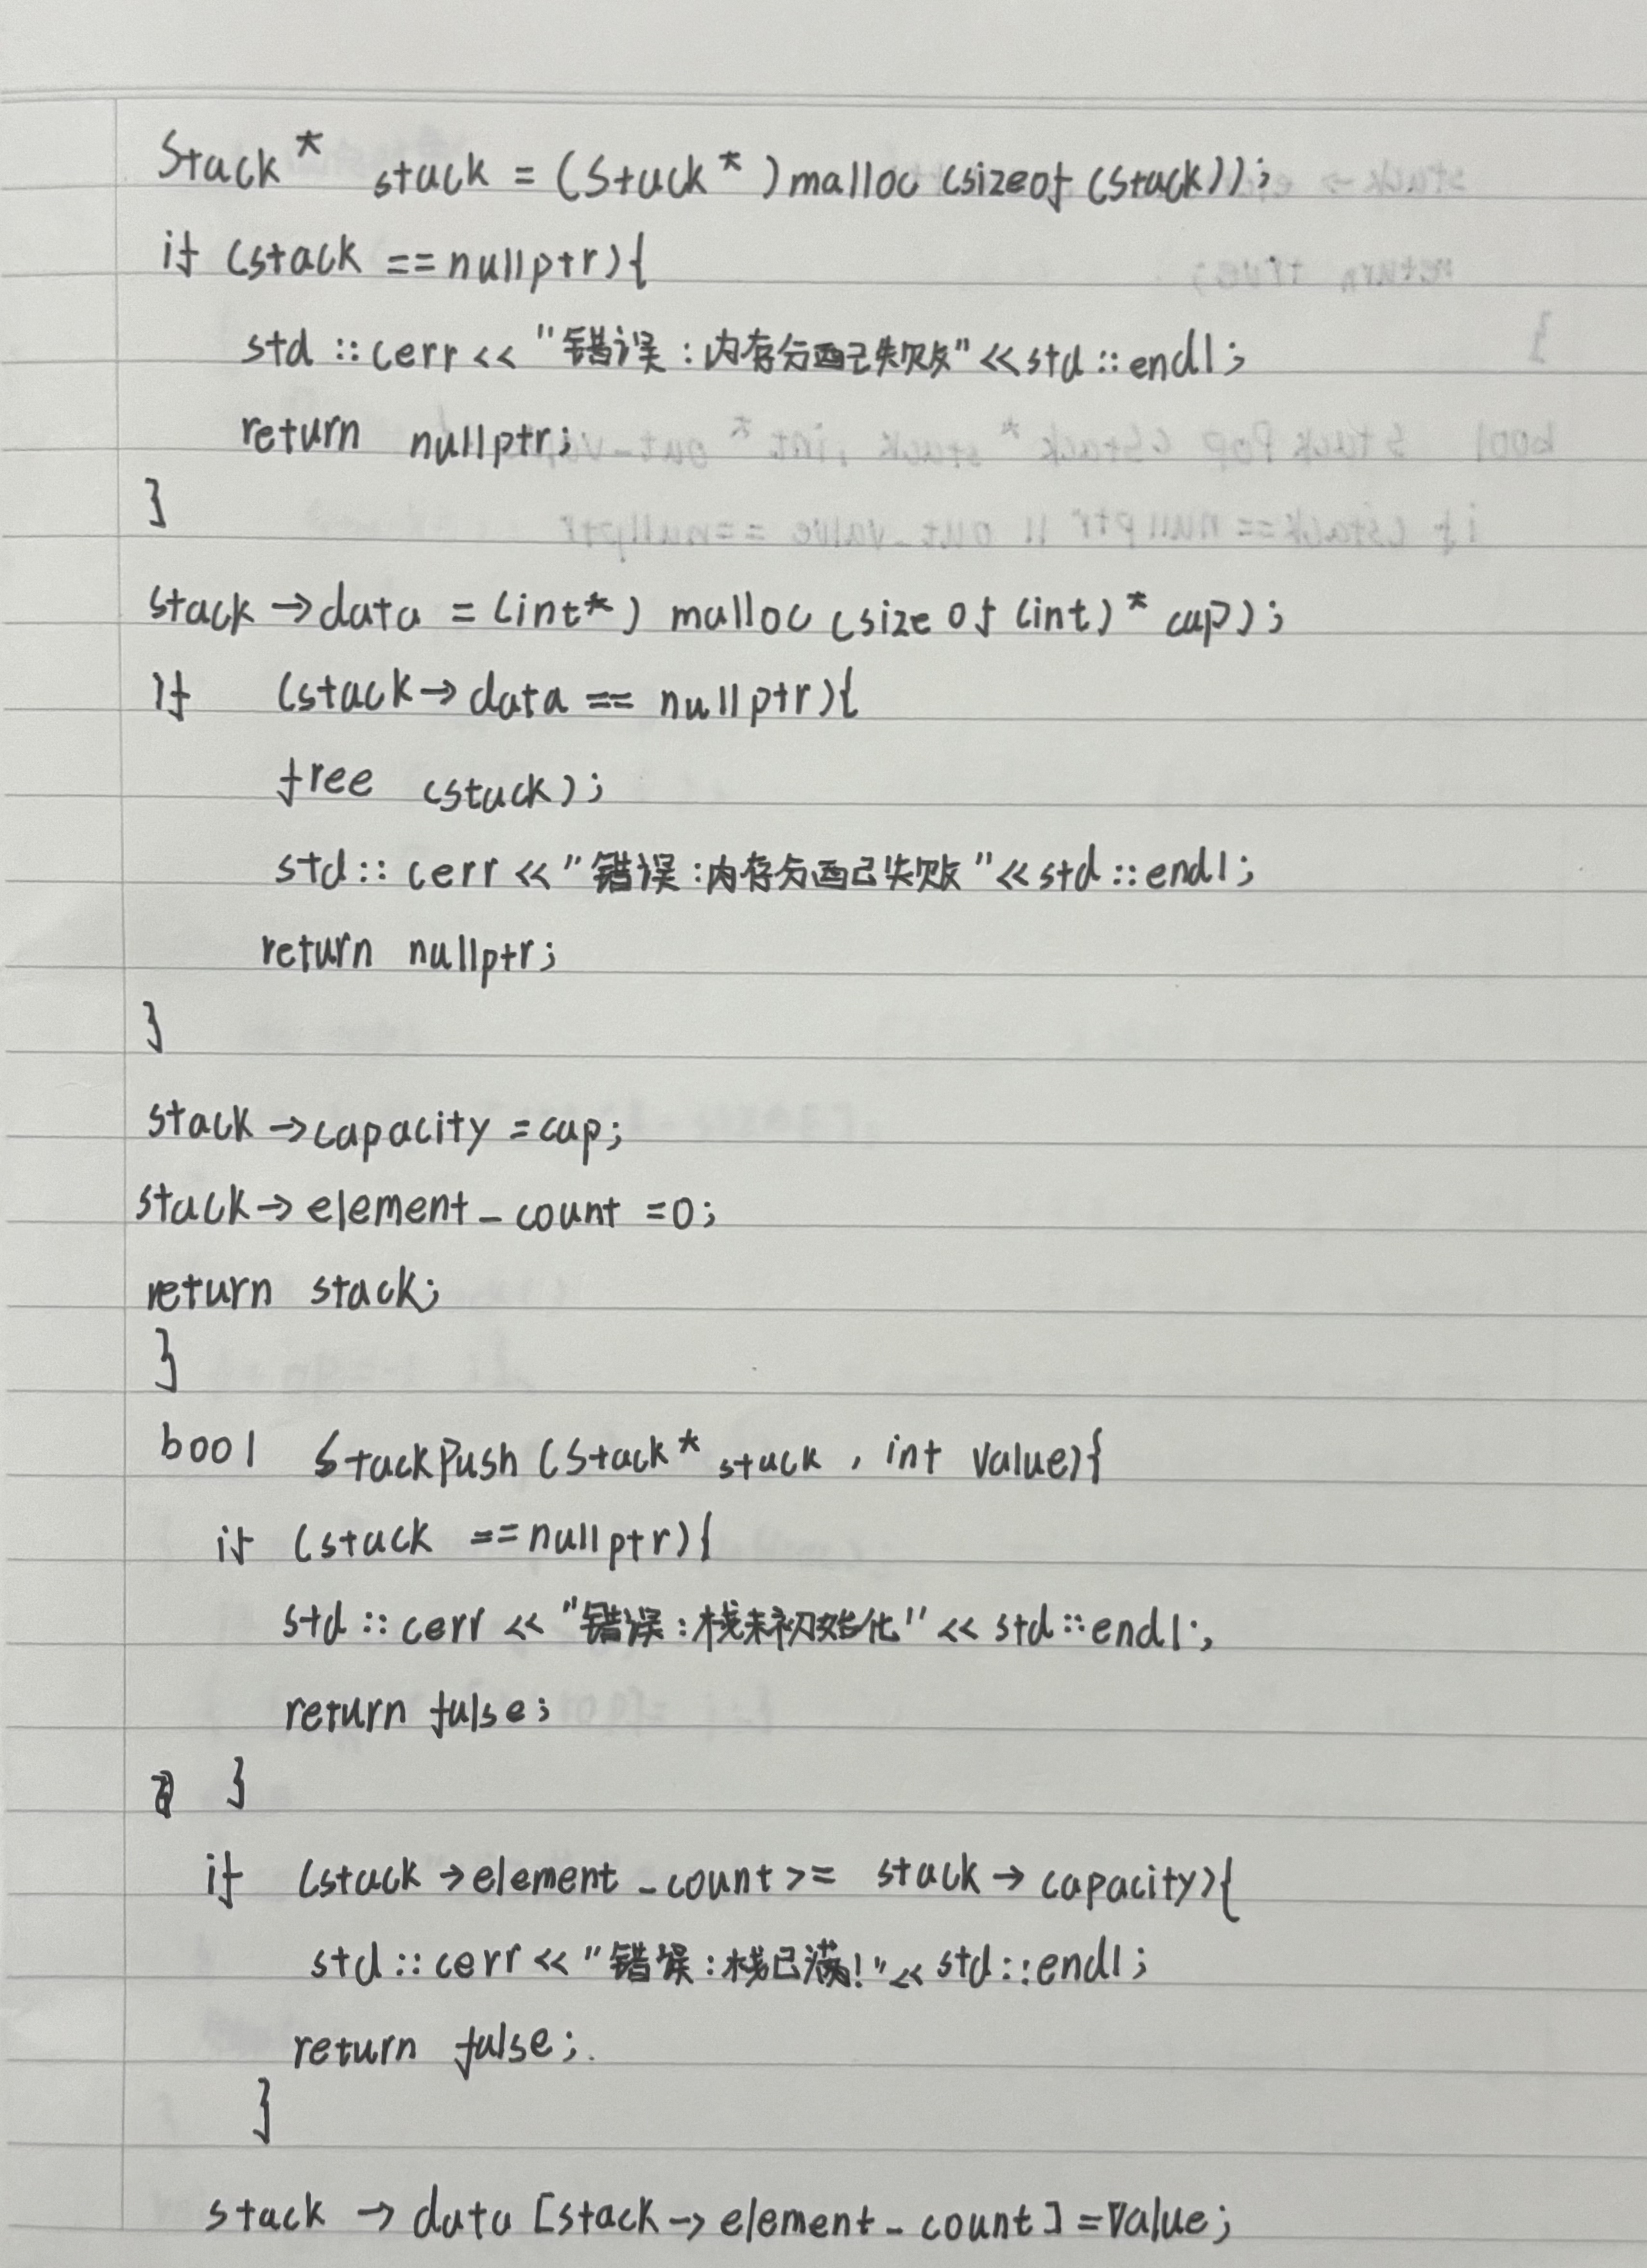 Stack* stack = (Stack*)malloc(sizeof(Stack));
if (stack ==nullptr){
std::cerr<<"错误:内存分配失败"<<std::endl;
return nullptr;
}
stack→data = (int*) malloc(sizeof(int)* cap);
if (stack→data == nullptr){
free (stack);
std::cerr<<"错误:内存分配失败"<<std::endl;
return nullptr;
}
stack→capacity=cap;
stack→element_count =0;
return stack;
}
bool StackPush(Stack* stack, int value){
if (stack ==nullptr){
std::cerr<<"错误:栈未初始化"<<std::endl;
return false;
}
if (stack→element_count>= stack→capacity){
std::cerr<<"错误:栈已满!"<<std::endl;
return false;
}
stack→data[stack→element_count]=value;